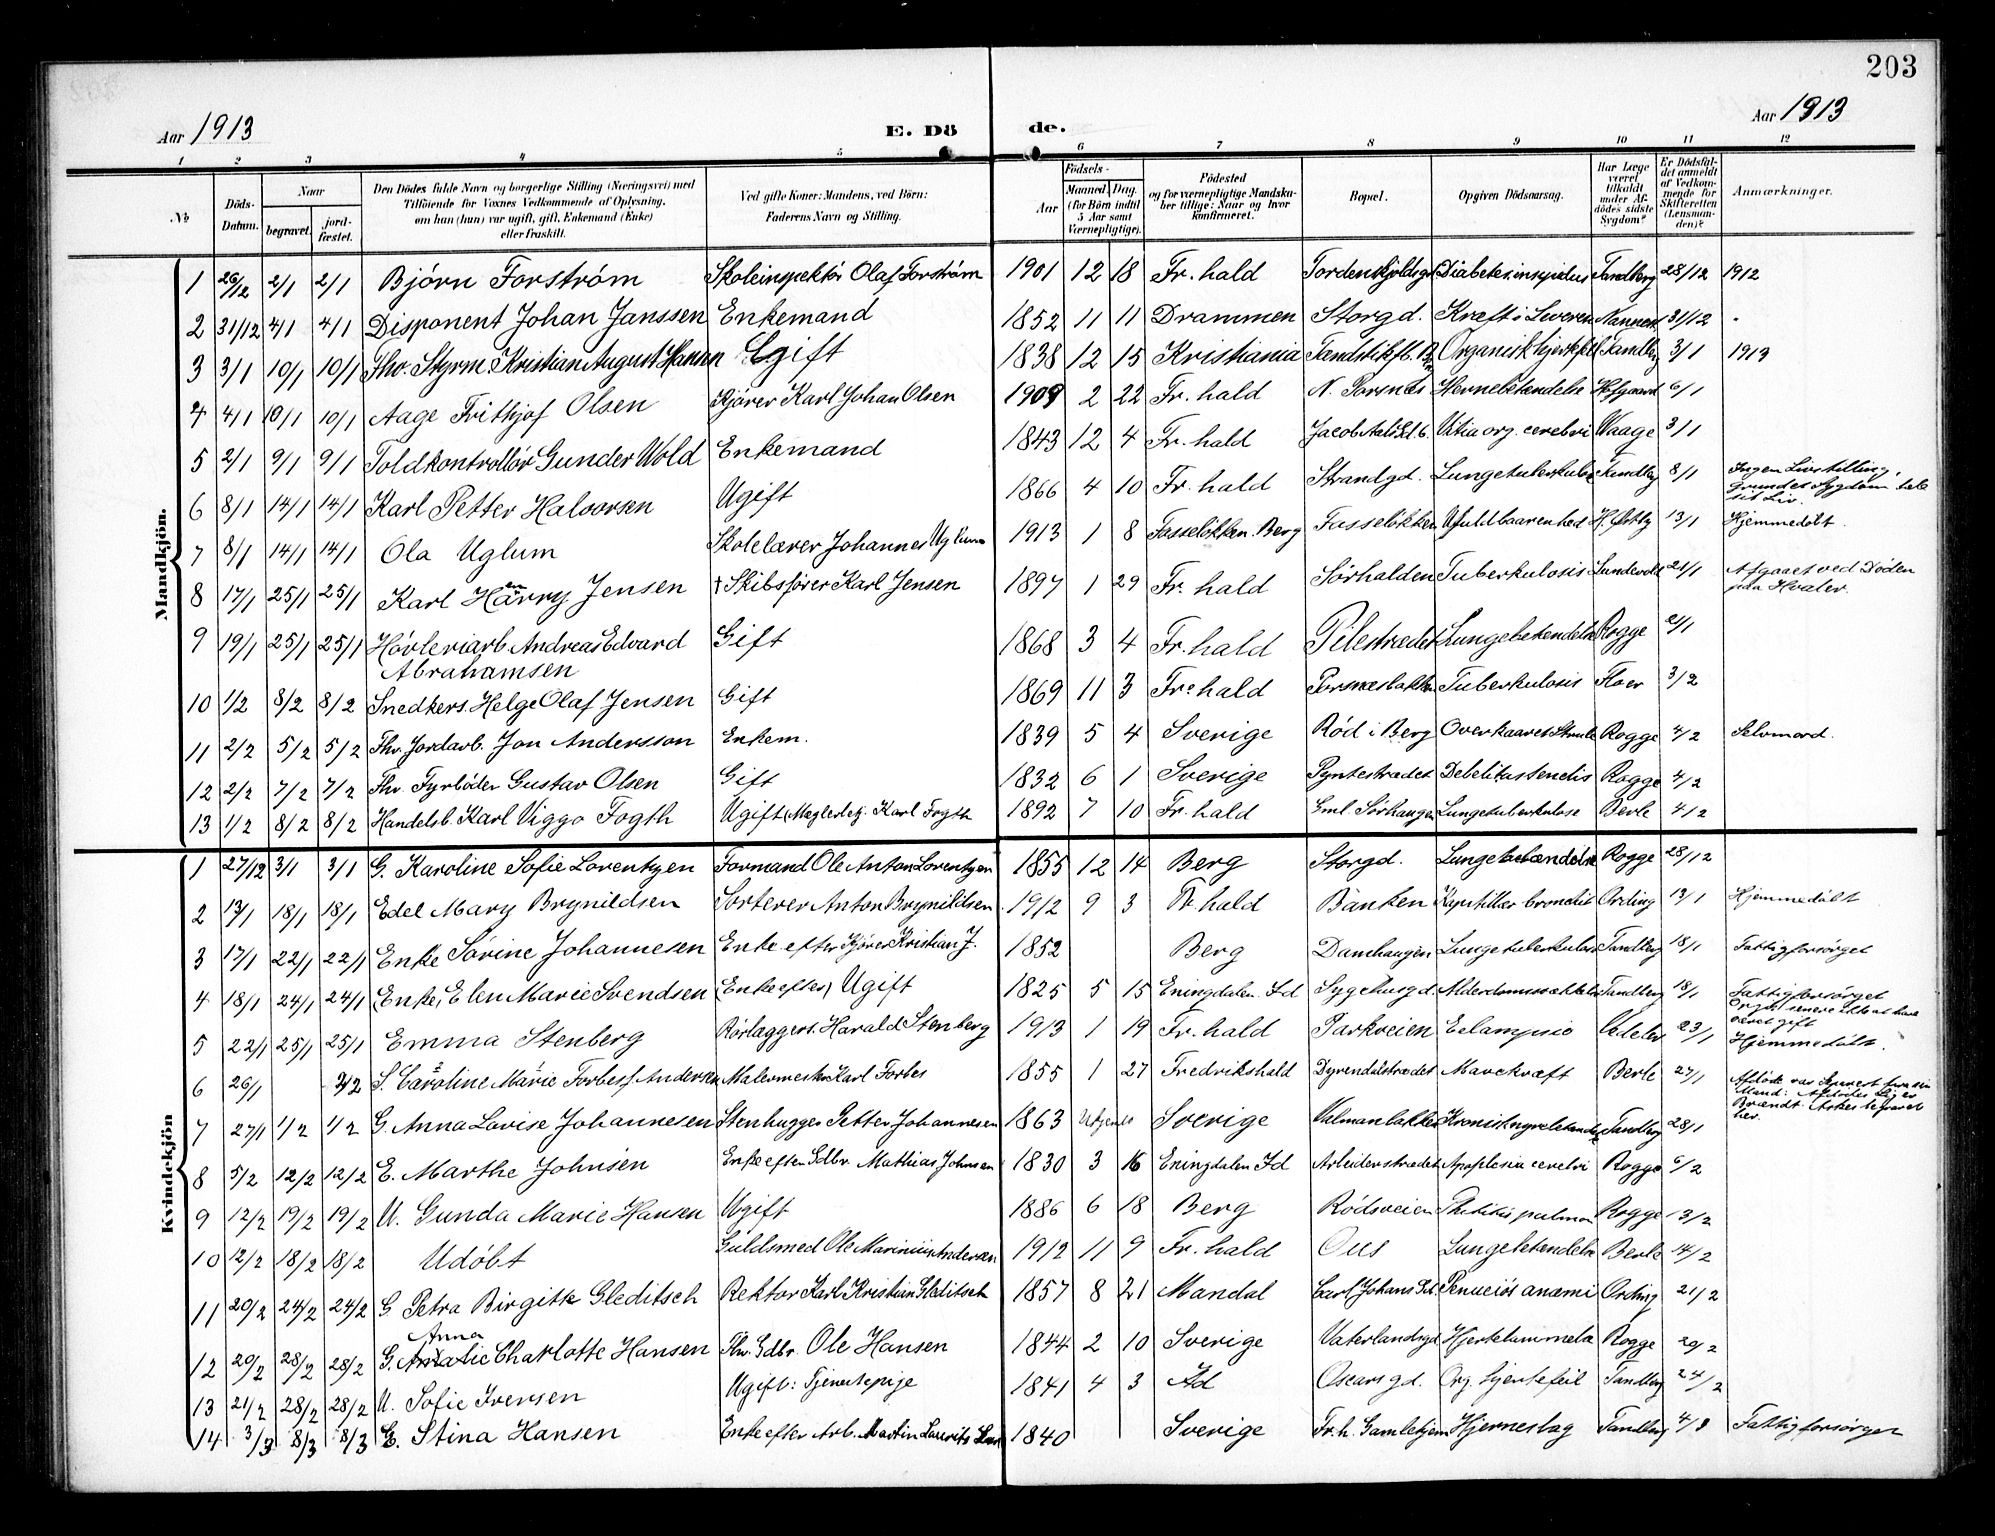 203
Aar 1913
E. Dö
de.
Aar 1913
1 2 3 4 5 6 7 8 9 10 11 12
No
Döds-Datum.
Naar
begravet.
jord-fæstet.
Den Dödes fulde Navn og borgerlige Stilling (Næringsvei) med
Tilföiende for Voxnes Vedkommende af Oplysning,
om han (hun) var ugift, gift, Enkemand (Enke)
eller fraskilt.
Ved gifte Koner: Mandens, ved Börn:
Faderens Navn og Stilling.
Födsels-
Aar
Maaned. Dag.
(for Börn indtil
5 Aar samt
Værnepligtige).
Födested
og for værnepligtige Mandska-
ber tillige: Naar og hvor
konfirmeret.
Bopæl.
Opgiven Dödsaarsag.
Har Læge
været
tilkaldt
under Af-
dödes sidste
Sygdom?
Er Dödsfal-
det anmeldt
af Vedkom-
mende for
Skifteretten
(Lensman-
den)?
Anmærkninger.
Mandkjön.
1 26/12 2/1 2/1 Bjórn Forstróm Skoleinspektór Olaf Forstróm 1901 12 18 Fr. hald Tordenskjoldsgd Diabetes insipidus Tandberg 28/12 1912
2 31/12 4/1 4/1 Disponent Johan Janssen Enkemand 1852 11 11 Drammen Storgd. Kræft i Leveren 31/12 "
3 3/1 10/1 10/1 Fhv. Styrm. Kristian August Hansen Ugift 1838 12 15 Kristiania Organisk hjertefeil Tandberg 3/1 1913
4 4/1 10/1 10/1 Aage Frithjof Olsen Kjórer Karl Johan Olsen 1909 2 22 Fr. hald N. Porsnes Hernebetændelse Hofgaard 6/1
5 2/1 9/1 9/1 Toldkontrollór Gunder Wold Enkemand 1843 12 4 Fr. hald Vitia org. cerebri Waage 3/1
6 8/1 14/1 14/1 Karl Petter Halvorsen Ugift 1866 4 10 Fr. hald Strandgd. Lungetuberkulose Tandberg 8/1 Ingen Livstilling, grundet Sygdom hele sit Liv.
7 8/1 14/1 14/1 Ola Uglum Skolelærer Johannes Uglum 1913 1 8 Fasselökken. Berg Fasselökken Ufuldbaarenhed 13/1 Hjemmedöbt.
8 17/1 25/1 25/1 Karl Henry Jensen † Skibsfórer Karl Jensen 1897 1 29 Fr. hald Sórhalden Tuberkulosis 21/1 Afgaaet ved Dóden paa Hvaler.
9 19/1 25/1 25/1 Hóvleriarb. Andreas Edvard Abrahamsen Gift 1868 3 4 Fr. hald Pilestrædet Lungebetændelse Rogge 21/1
10 1/2 8/2 8/2 Snedkers. Helge Olaf Jensen Gift 1869 11 3 Fr. hald Porsnesbakken Tuberkulosis Floer 3/2
11 2/2 5/2 5/2 Fhv. Jordarb. Jon Andersson Enkem. 1839 5 4 Sverige Ród i Berg Overskaaret Strube Rogge 4/2 Selvmord.
12 2/2 7/2 7/2 Fhv. Fyrbóder Gustav Olsen Gift 1832 6 1 Sverige Pyntestrædet Rogge 4/2
13 1/2 8/2 8/2 Handelsb. Karl Viggo Fogth Ugift (Meglerbetj. Karl Fogth 1892 7 10 Fr. hald Gml. Sórhaugen Lungetuberkulose Berle 4/2
Kvindekjön
1 27/12 3/1 3/1 G. Karoline Sofie Lorentzen Formand Ole Anton Lorentzen 1855 12 14 Berg Storgd. Lungebetændelse Rogge 28/12
2 13/1 18/1 18/1 Edel Mary Brynildsen Sorterer Anton Brynildsen 1912 9 3 Fr. hald Banken Kapillær bronchit Ording 13/1 Hjemmedóbt
3 17/1 22/1 22/1 Enke Sorine Johannesen Enke efter Kjórer Kristian J. 1852 Berg Damhaugen Lungetuberkulose Tandberg 18/1 Fattigforsórget
4 18/1 24/1 24/1 (Enke) Elen Marie Svendsen (Enke efter) Ugift 1825 5 15 Eningdalen. Id Sygehusgd. Alderdomssvækkelse Tandberg 18/1 Fattigforsórget Opgi. senere ikke at have været gift
5 22/1 25/1 25/1 Emma Stenberg Rórlæggers. Harald Stenberg 1913 1 19 Fr. hald Parkveien Eclampsie Vedeler 23/1 Hjemmedóbt.
6 26/1 3/2 S. Caroline Marie Forbes f. Andersen Malermester Karl Forbes 1855 1 27 Fredrikshald Dyrendalstrædet Marvkræft Berle 27/1 Afdóde var Separert fra sin Mand: Afdódes Lig er Brændt. Asken begravet her.
7 27/1 1/2 1/2 G. Anna Lovise Johannesen Stenhugger Petter Johannesen 1863 Sverige Valmanbakken Kronisk nyrebetændelse Tandberg 28/1
8 5/2 12/2 12/2 E. Marthe Johnsen Enke efter Gdbr. Mathias Johnsen 1830 3 16 Eningdalen Id Arbeiderstrædet Apoplexia cerebri Rogge 6/2
9 12/2 19/2 19/2 U. Gunda Marie Hansen Ugift 1886 6 18 Berg Ródsveien Phthisis pulmon Rogge 13/2
10 12/2 18/2 18/2 Udóbt Guldsmed Ole Marinius Andersen 1912 11 9 Fr. hald Ous Lungebetændelse Berle 14/2
11 20/2 24/2 24/2 G Petra Birgitte Gleditsch Rektor Karl Kristian Gleditsch 1857 8 21 Mandal Carl Johans Gd. Penuciós anæmi Ording 21/2
Anna
12 20/2 28/2 28/2 G. Amalie Charlotte Hansen Fhv. Gdbr. Ole Hansen 1844 2 10 Sverige Vaterlandsgd Hjertelammelse Rogge 20/2
13 21/2 28/2 28/2 U. Sofie Iversen Ugift: Tjenestepige 1841 4 3 Id Oscarsgd. Org. hjertefeil Tandberg 24/2
14 3/3 8/3 8/3 E. Stina Hansen Enke efter Arb. Martin Laurits 1840 Sverige Fr.h. Gamlehjem Hjerneslag Tandberg 4/3 Fattigforsórget